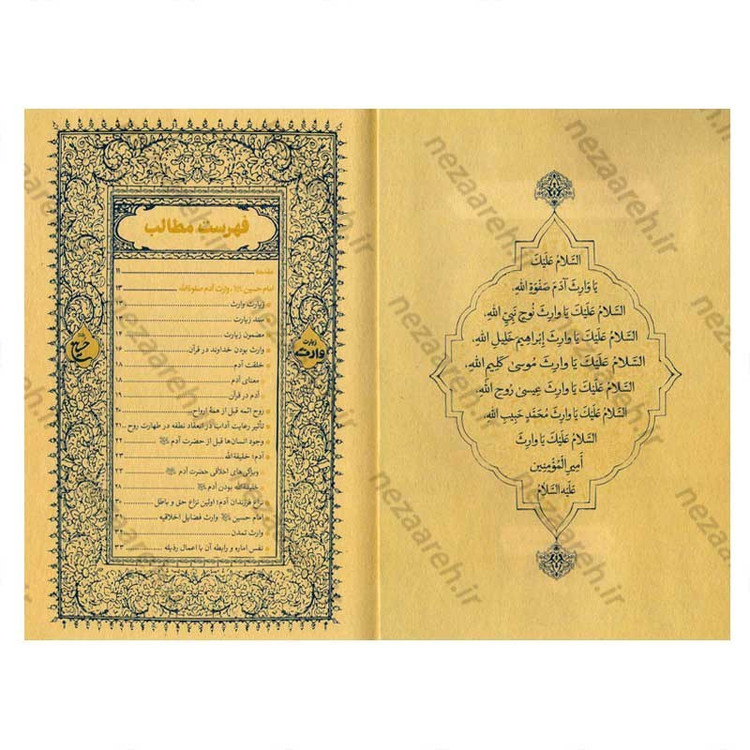 السَّلامُ عَلَيْكَ
يَا وَارِثَ آدَمَ صَفْوَةِ اللهِ،
السَّلامُ عَلَيْكَ يَا وَارِثَ نُوحٍ نَبِيِّ اللهِ،
السَّلامُ عَلَيْكَ يَا وَارِثَ إِبْرَاهِيمَ خَلِيلِ اللهِ،
السَّلامُ عَلَيْكَ يَا وَارِثَ مُوسىٰ كَلِيمِ اللهِ،
السَّلامُ عَلَيْكَ يَا وَارِثَ عِيسىٰ رُوحِ اللهِ،
السَّلامُ عَلَيْكَ يَا وَارِثَ مُحَمَّدٍ حَبِيبِ اللهِ،
السَّلامُ عَلَيْكَ يَا وَارِثَ
أَمِيرِ الْمُؤْمِنِينَ
عَلَيْهِ السَّلَامُ
فهرست مطالب
مقدمه ۱۱
امام حسین ، وارث آدم صفوة‌الله ۱۳
زیارت وارث ۱۳
سند زیارت
مضمون زیارت ۱۴
وارث بودن خداوند در قرآن
خلقت آدم ۱۸
معنای آدم ۱۸
آدم در قرآن ۱۹
روح ائمه قبل از همهٔ ارواح ۲۰
تأثیر رعایت آداب در انعقاد نطفه در طهارت روح
وجود انسان‌ها قبل از حضرت آدم ۲۲
آدم؛ خلیفة‌الله ۲۳
ویژگی‌های اخلاقی حضرت آدم ۲۳
خلیفة‌الله بودن آدم ۲۸
نزاع فرزندان آدم؛ اولین نزاع حق و باطل ۳۰
امام حسین وارث فضایل اخلاقیه
وارث تمدن
نفس اماره و رابطه آن با اعمال رذیله ۳۳
زیارت
وارث
nezaareh.ir